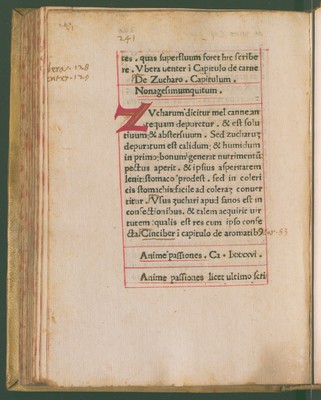 243
tes. quas superfluum foret hic scribe
re. Vbera uenter i Capitulo de carne
De Zucharo. Capitulum.
Nonagesimumquitum.
ZVcharum dicitur mel canne an
tequam depuretur. & est solu
tiuum & abstersiuum. Sed zucharuz
depuratum est calidum: & humidum
in primo: bonum generat nutrimentũ
pectus aperit. & ipsius asperitatem
lenit: stomaco prodest. sed in coleri
cis stomachis: facile ad colerã conuer
titur. Vsus zuchari apud sanos est in
confectionibus. & talem acquirit uir
tutem qualis est res cum ipso confe
cta: Cinciber i capitulo de aromatib9
Anime passiones. Ca. lxxxxvi.
Anime passiones licet ultimo scri